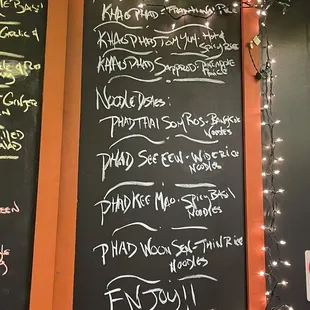 Garlic &
Ginger
Khao Phad - Traditional Rice
Khao Phad Tom Yum - Hot &
Spicy Rice
Khao Phad Sapprod - Pineapple
Noodle Dishes:
Phad Thai Som Ros - Bangkok
Noodles
Phad See Eew - Wide Rice
Noodles
Phad Kee Mao - Spicy Basil
Noodles
Phad Woon Sen - Thin Rice
Noodles
Enjoy!!